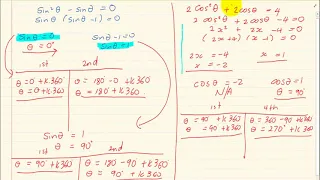 sin²θ - sinθ = 0
sinθ (sinθ - 1) = 0
sinθ = 0
θ = 0°
sinθ - 1 = 0
sinθ = 1
1st 2nd
θ = 0° + k360°
θ = 0 + k360°
θ = 180 - 0 + k360°
θ = 180° + k360°
sinθ = 1
θ = 90°
1st 2nd
θ = 90° + k360°
θ = 180 - 90 + k360°
θ = 90° + k360
2cos²θ + 2cosθ = 4
2cos²θ + 2cosθ - 4 = 0
2x² + 2x - 4 = 0
(2x+4) (x-1) = 0
2x = -4
x = -2
x = 1
cosθ = -2
N/A
cosθ = 1
θ = 90°
1st 4th
θ = 90 + k360
θ = 90 + k360
θ = 360 - 90 + k360
θ = 270° + k360°